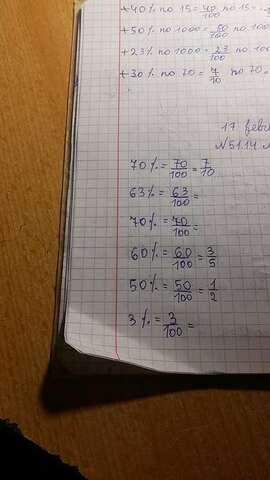 +40% по 15 = 40/100 по 15 =
+50% по 1000 = 50/100 по 100
+23% по 1000 = 23/100 по 100
+30% по 70 = 7/10 по 70 =
17. febr
N 51.14
70% = 70/100 = 7/10
63% = 63/100 =
70% = 70/100 =
60% = 60/100 = 3/5
50% = 50/100 = 1/2
3% = 3/100 =